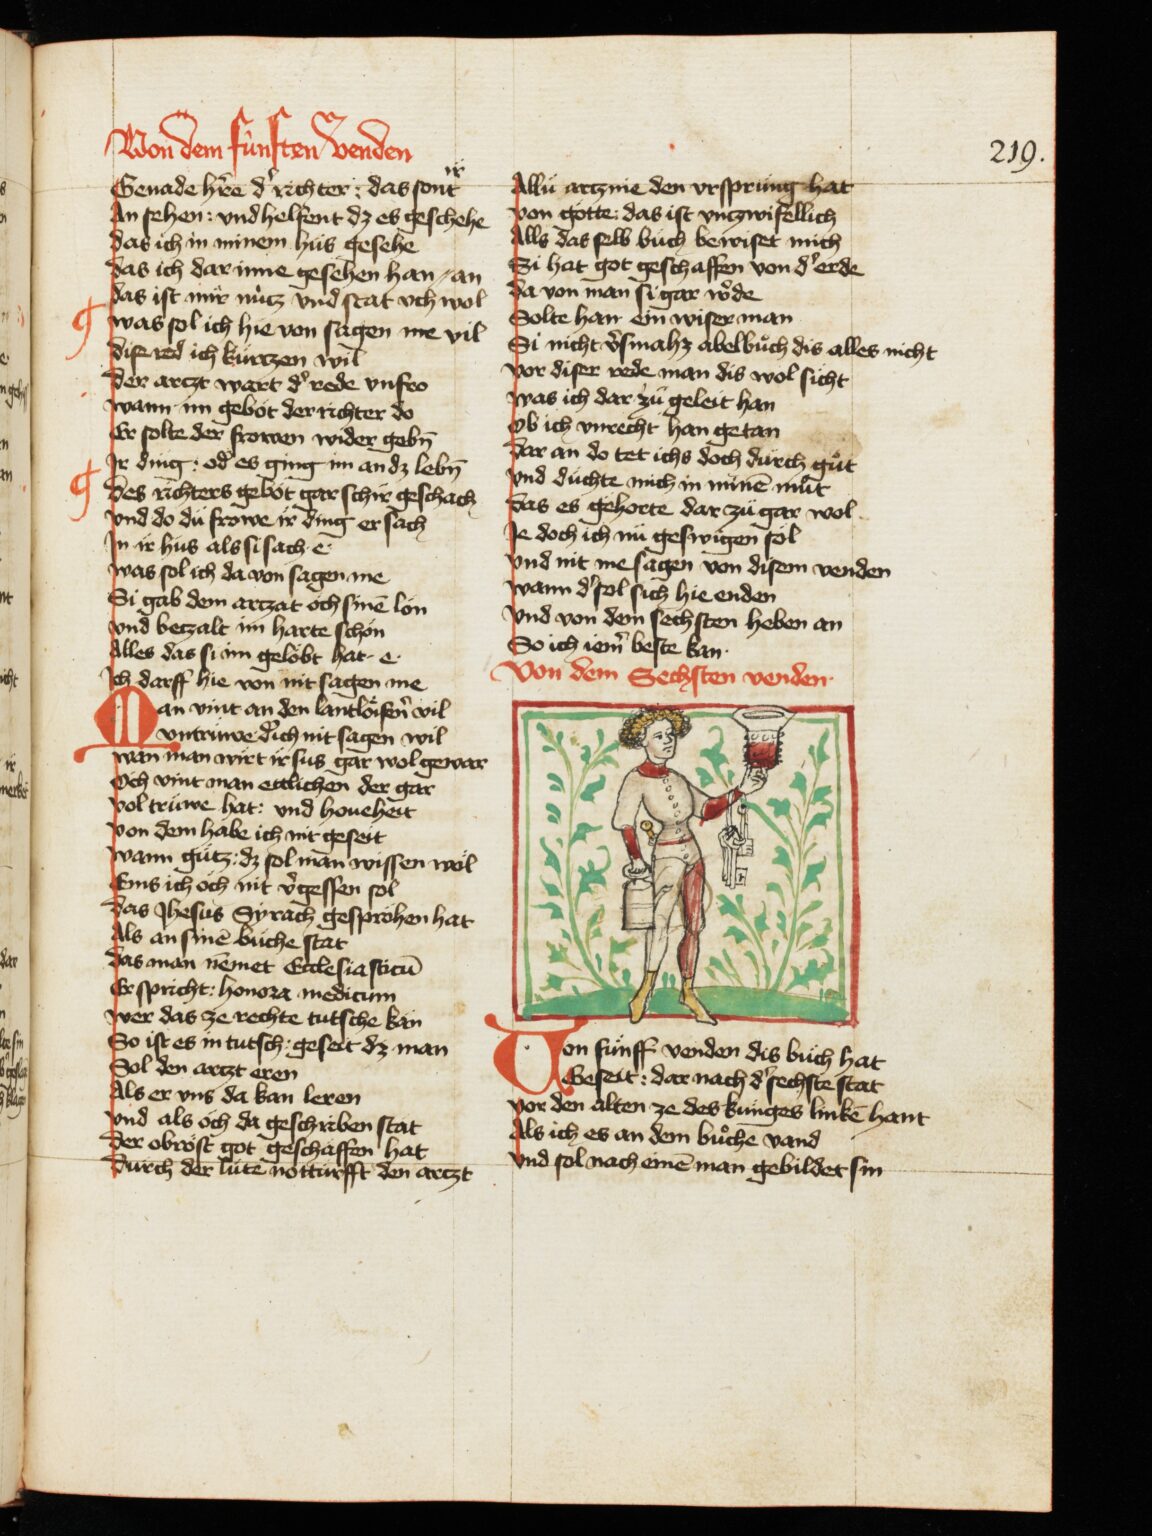 Von dem fünften venden
219.
Genade h're d' richter: das sont ir
An sehen: vnd helfent dz es geschehe
das ich in minem hus gesehe
das ich dar inne gesehen han / an
das ist mir nütz vnd stat vch wol
was sol ich hie von sagen me vil
dise red ich kürtzen wil
Der artzt wart d' rede vnfro
wann im gebot der richter do
Er solte der frowen wider gebn̄
Ir ding: od' es ging im an dz lebn̄
Des richters gebot gar schir geschach
vnd do dü frowe ir ding ersach
In ir hus als si sach ·e·
was sol ich da von sagen me
Si gab dem artzat och sinē lon
vnd betzalt im harte schon
Alles das si im gelobt hat · e ·
Ich darff hie von nit sagen me
Man vint an den lantlöifen vil
vntrüwe d' ich nit sagen wil
wan man wirt ir sus gar wol gewar
Och vint man ettlichen der gar
vol trüwe hat: vnd houeheit
von dem habe ich nit geseit
wann gütz: dz sol man wissen wol
Eins ich och nit v'gessen sol
das Jhesus Syrach gesprohen hat
Als an sinē büche stat
das man nēmet Ecclesiasticū
Er spricht: honora medicum
wer das ze rechte tutsche kan
So ist es in tutsch: geseit dz man
Sol den artzt eren
Als er vns da kan leren
vnd als och da geschriben stat
Der obrost got geschaffen hat
Durch der lüte notturfft den artzt
Allü artznie den vrsprung hat
von gotte: das ist vnzwifellich
Alls das selb büch bewiset mich
Si hat got geschaffen von d' erde
da von man si gar w'de
Solte han ein wiser man
Si nicht v'smahz abel büch dis alles nicht
vor diser rede man dis wol sicht
was ich dar zü geleit han
Ob ich vnrecht han getan
Dar an do tet ichs doch durch güt
vnd duchte mich in minē müt
das es gehorte dar zü gar wol
Je doch ich nu geswigen sol
vnd nit me sagen von disem venden
wann d' sol sich hie enden
vnd von dem sechsten heben an
So ich iem' beste kan ·
Von dem Sechsten venden ·
Von fünff venden dis büch hat
Geseit: dar nach d' sechste stat
vor den alten ze des kunges linkē hant
Als ich es an dem büche vand
vnd sol nach einē man gebildet sin